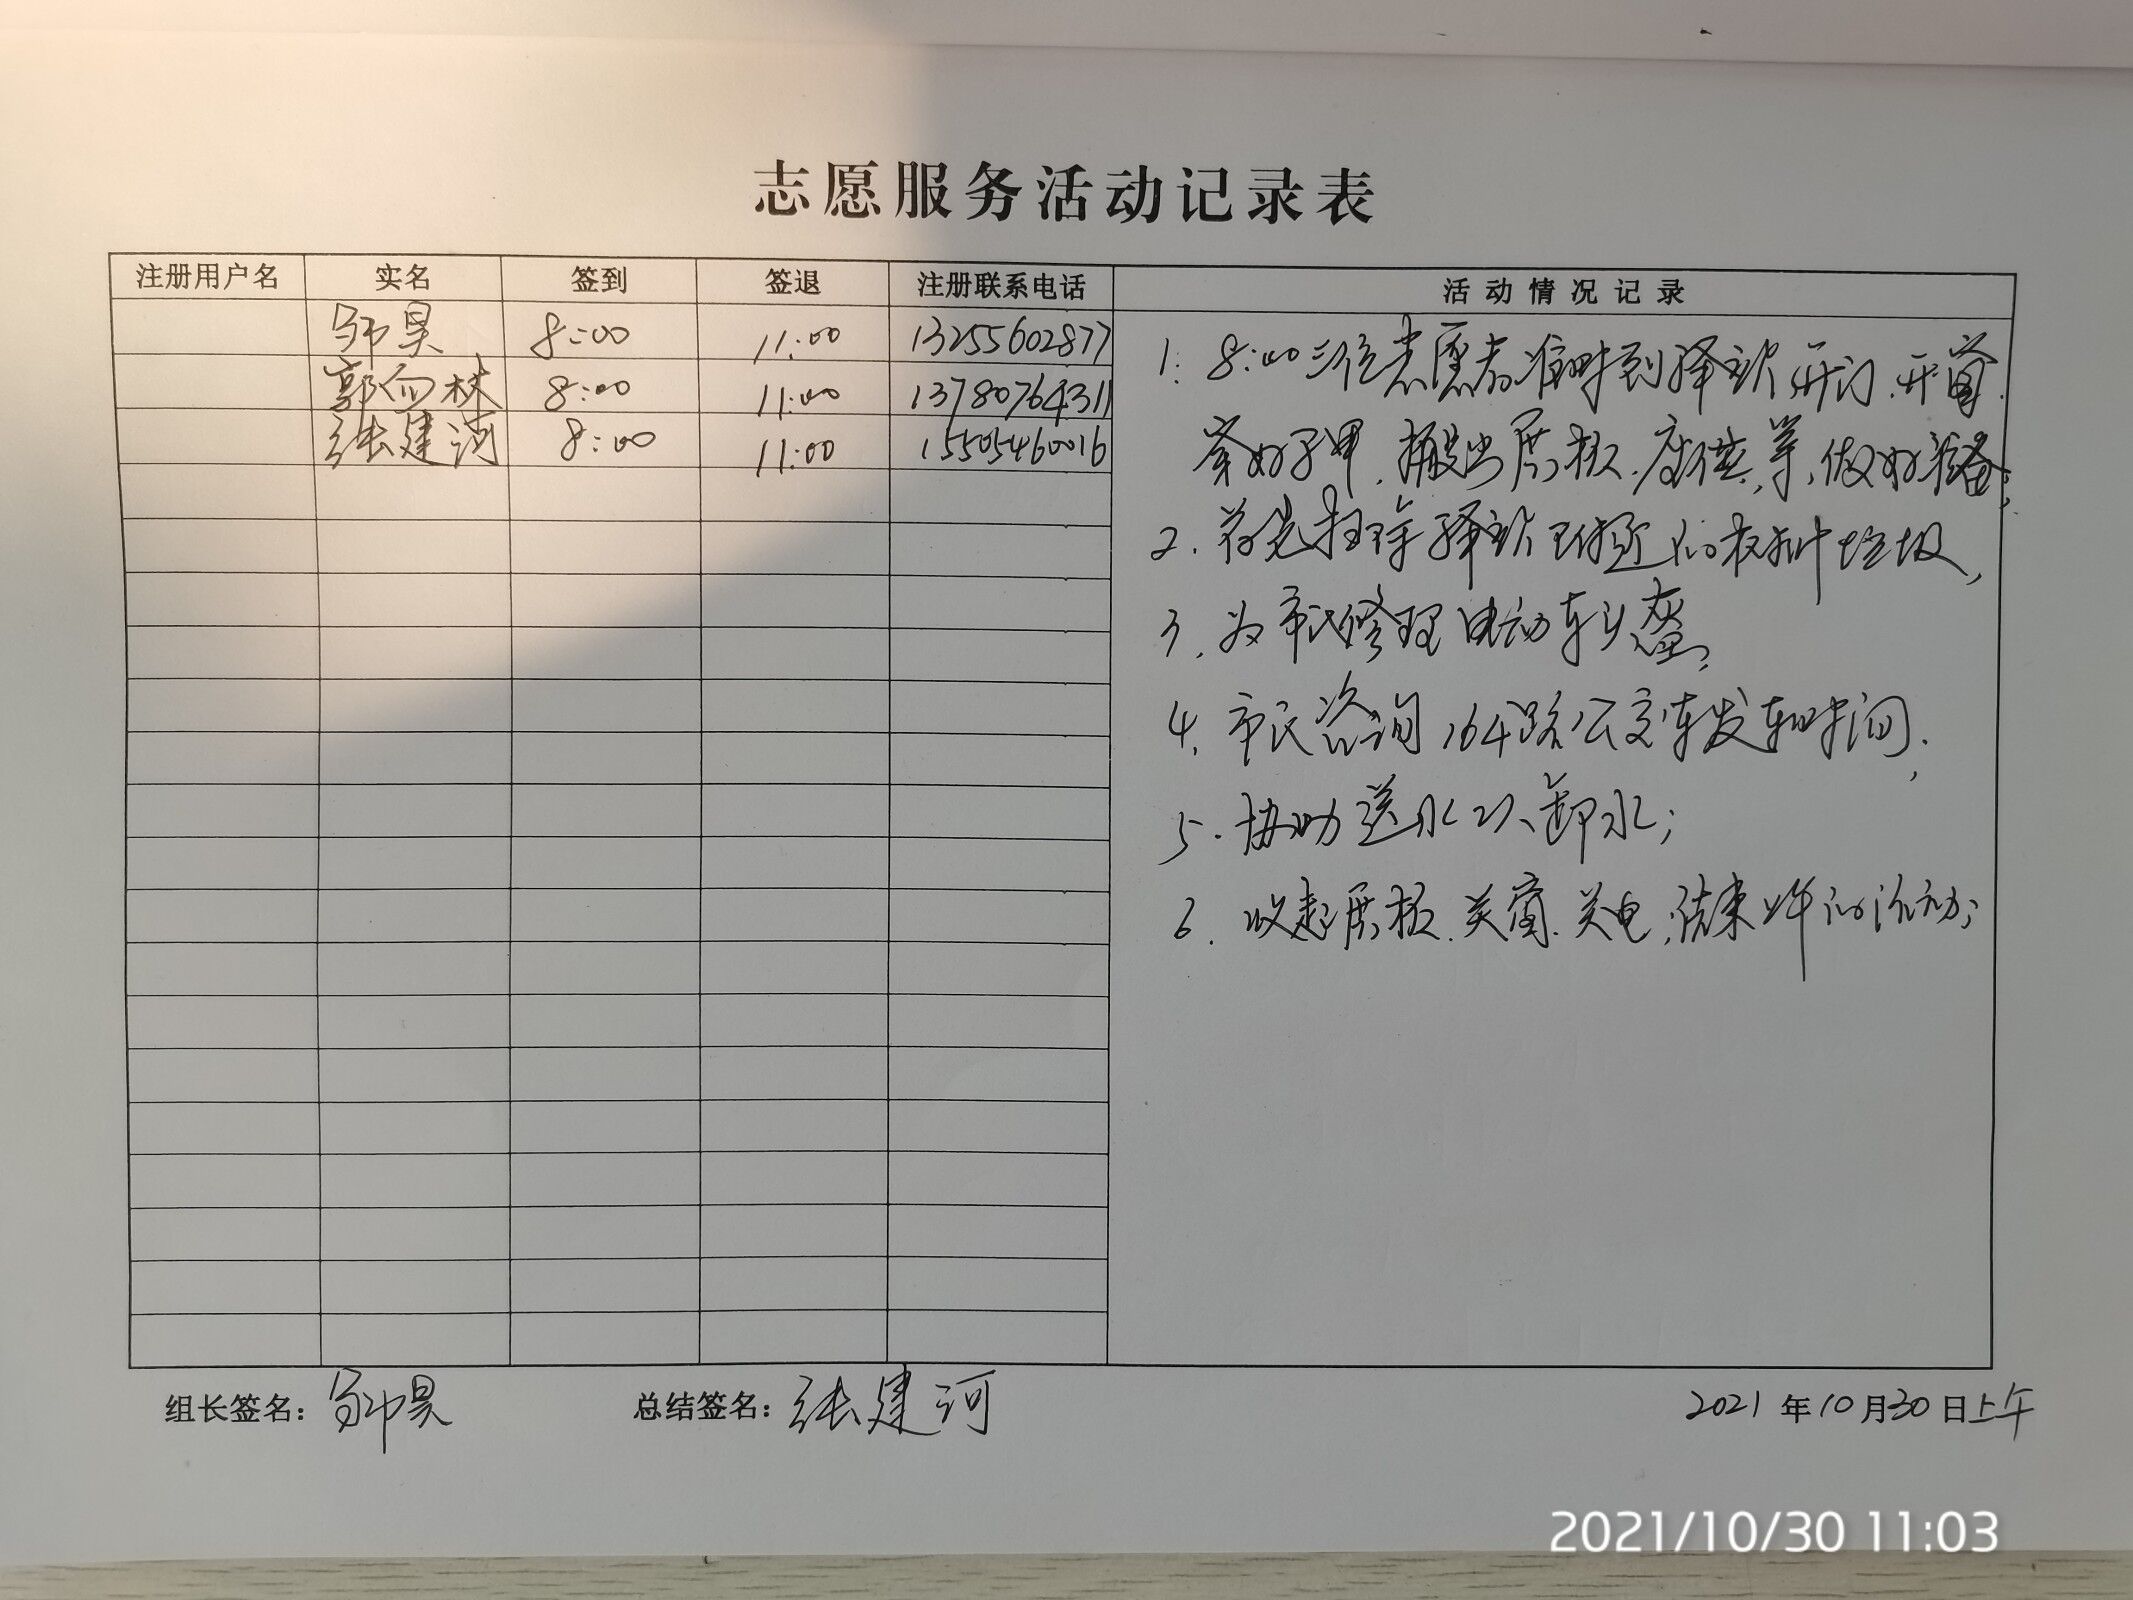 志愿服务活动记录表
注册用户名 实名 签到 签退 注册联系电话 活动情况记录
昊 8:00 11:00 13255602877
郭向林 8:00 11:00 13780764311
张建河 8:00 11:00 15505460016
1. 8:00三位志愿者准时到驿站,开门.开窗.
穿好马甲,搬出展板.座椅,等,做好准备;
2.首先扫除驿站附近的树叶垃圾,
3.为市民修理电动车头盔,
4.市民咨询164路公交车发车时间.
5.协助送水工卸水;
6.收起展板.关窗.关电,结束上午的活动;
组长签名: 昊 总结签名:张建河 2021年10月30日上午
2021/10/30 11:03